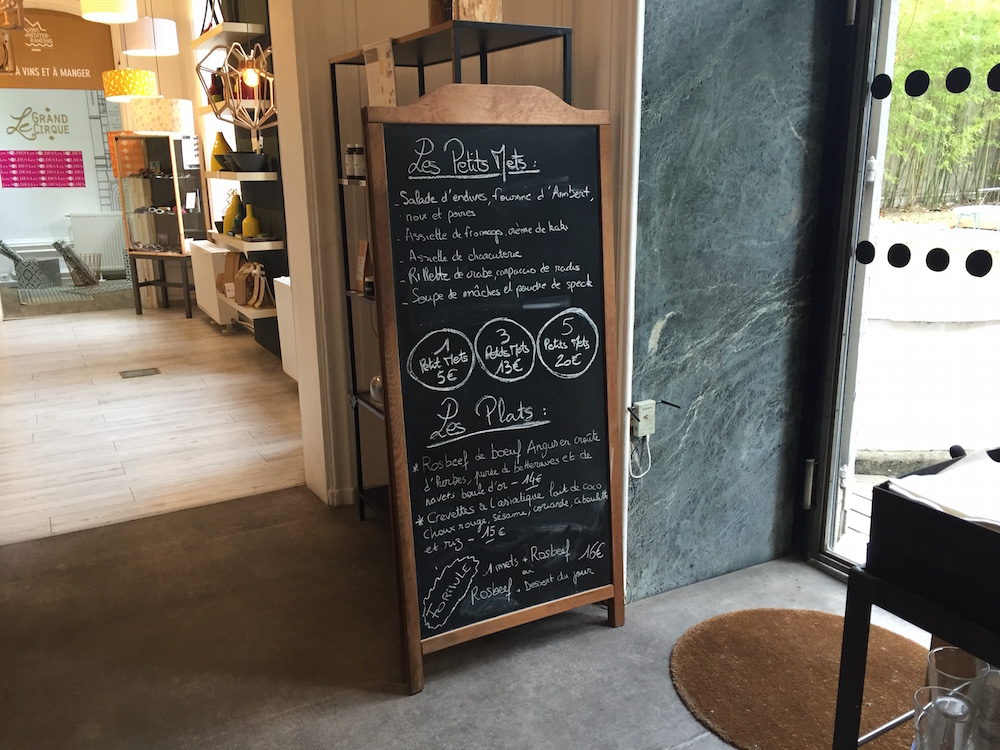 VINS
MÉDITER
RANÉENS
À VINS ET À MANGER
Le GRAND
CIRQUE
Les Petits Mets :
- Salade d'endives, fourme d'Ambert,
noix et poires
- Assiette de fromage, crème de kaki
- Assiette de charcuterie
- Rillette de crabe, carpaccio de radis
- Soupe de mâches et poudre de speck
1
Petit Mets
5€
3
Petits Mets
13€
5
Petits Mets
20€
Les Plats :
* Rosbeef de bœuf Angus en croûte
d'herbes, purée de betteraves et de
navets boule d'or - 14€
* Crevettes à l'asiatique, lait de coco
choux rouge, sésame, coriande, ciboulette
et riz - 15€
FORMULE
1 mets + Rosbeef 16€
ou
Rosbeef + Dessert du jour